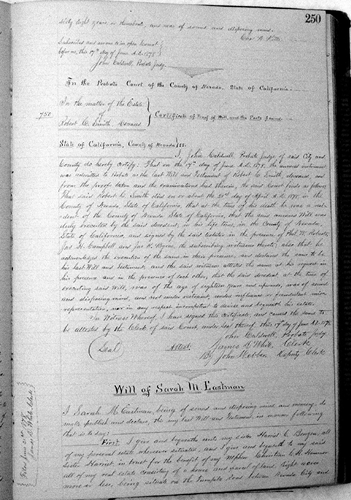 250
sixty eight years or thereabout, and was of sound and disposing mind.
Subscribed and sworn to in open Court
before me, this 19th day of June A.D. 1879.
John Caldwell, Probate Judge.
In the Probate Court of the County of Nevada, State of California.
In the matter of the Estate
of
Robert C. Smith, deceased
Certificate of Proof of Will, and the Facts Found.
State of California, County of Nevada SS.
I, John Caldwell, Probate Judge of said City and
County do hereby certify: That on the 19th day of June A.D. 1879, the annexed instrument
was admitted to Probate as the last Will and Testament of Robert C. Smith, deceased, and
from the proofs taken and the examinations had therein, the said Court finds as follows:
That said Robert C. Smith died on or about the day of April A.D. 1879, in the
County of Nevada, State of California, that at the time of his death he was a resi-
dent of the County of Nevada, State of California, that the said annexed Will was
duly executed by the said decedent, in his life time, in the County of Nevada,
State of California, and signed by the said testator, in the presence of
Campbell and the subscribing witnesses thereto; also that he
acknowledged the execution of the same in their presence, and declared the same to be
his last Will and testament, and the said witnesses attested the same at his request, in
his presence, and in the presence of each other, that the said decedent at the time of
executing said Will, was of the age of eighteen years and upwards, was of sound
and disposing mind, and not under restraint, undue influence or fraudulent mis-
representation, nor in any respect incompetent to devise and bequeath his estate.
In Witness Whereof, I have signed this Certificate and caused the same to
be attested by the Clerk of said Court, under seal thereof, this 19th day of June A.D. 1879.
John Caldwell, Probate Judge
(Seal) Attest, James D. White, Clerk
By John Deputy Clerk
Will of Sarah M Eastman
I Sarah M. Eastman, being of sound and disposing mind and memory, do
make publish and declare, this my last Will and Testament, in manner following
that is to say:
First. I give and bequeath unto my sister Harriet C.
all of my personal estate wherever situated, and I give and bequeath to my said
sister Harriet in trust for the benefit of my nephew
all of my real estate consisting of a house and parcel of land, eight acres
more or less, being situate on the Nevada City and